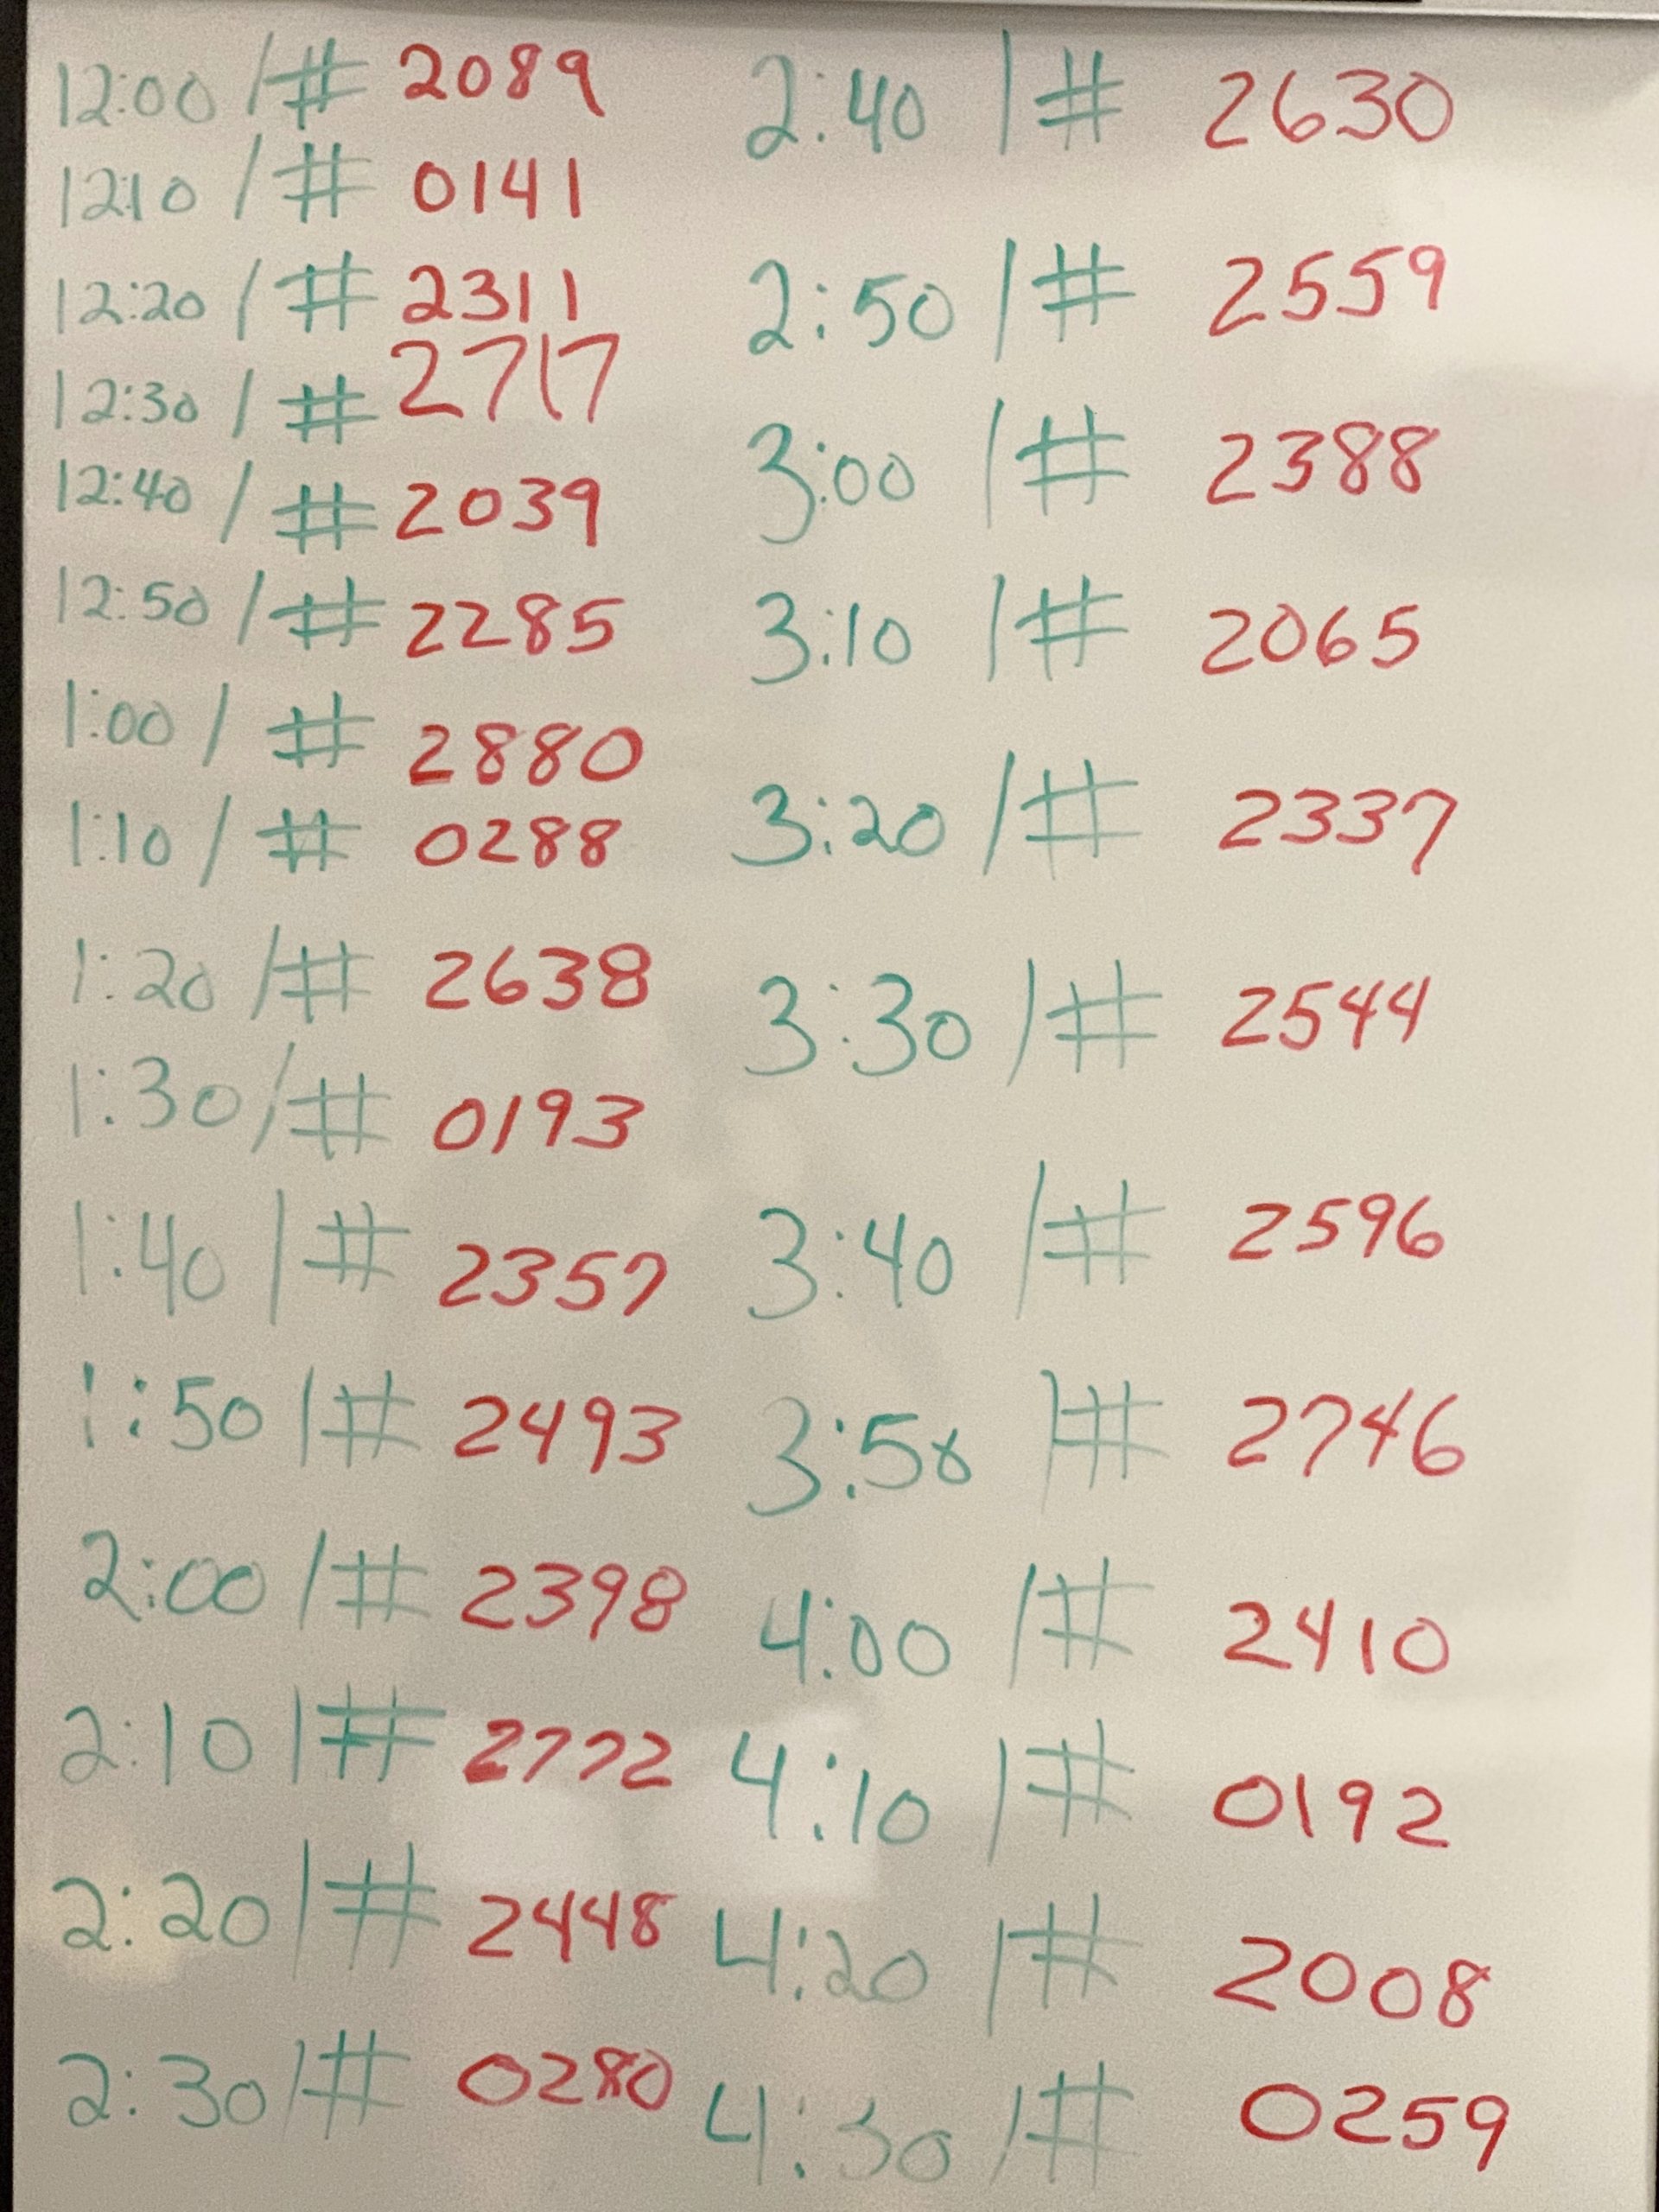 12:00 / # 2089
12:10 / # 0141
12:20 / # 2311
12:30 / # 2717
12:40 / # 2039
12:50 / # 2285
1:00 / # 2880
1:10 / # 0288
1:20 / # 2638
1:30 / # 0193
1:40 / # 2357
1:50 / # 2493
2:00 / # 2398
2:10 / # 2772
2:20 / # 2448
2:30 / # 0280
2:40 / # 2630
2:50 / # 2559
3:00 / # 2388
3:10 / # 2065
3:20 / # 2337
3:30 / # 2544
3:40 / # 2596
3:50 / # 2746
4:00 / # 2410
4:10 / # 0192
4:20 / # 2008
4:30 / # 0259